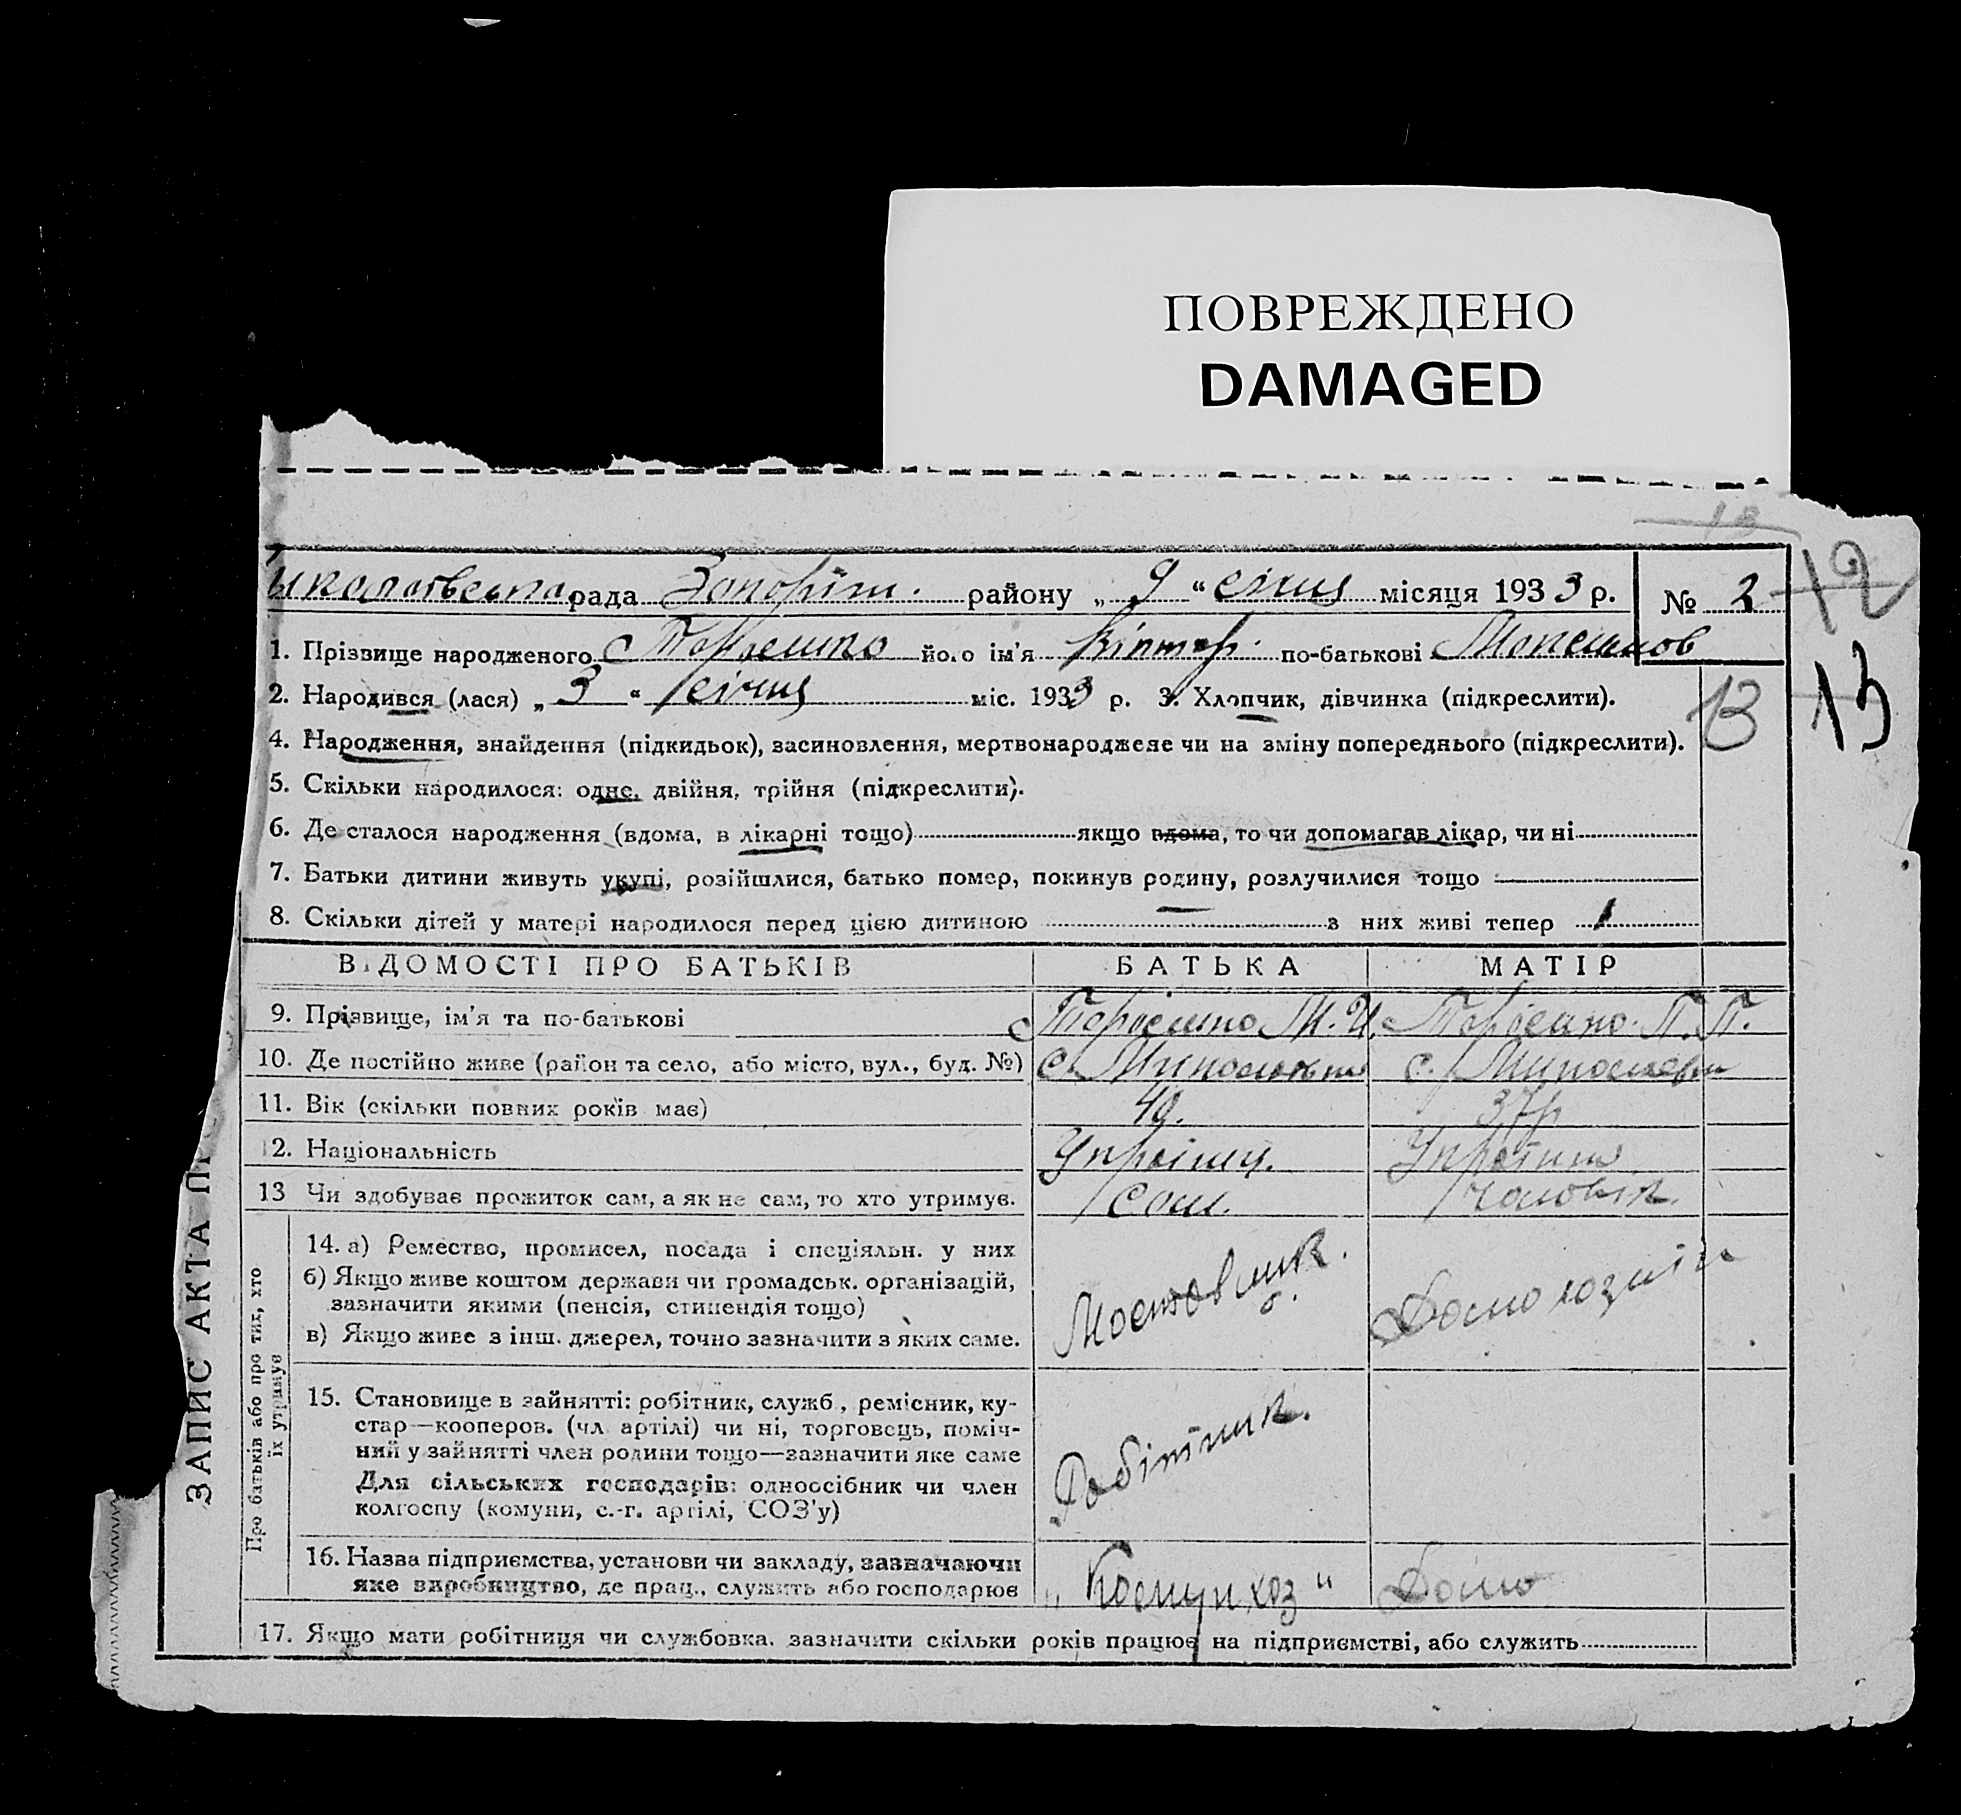 ПОВРЕЖДЕНО
DAMAGED
рада Запоріж. району „ 9 “ січня місяця 1933 р. № 2
12
1. Прізвище народженого його ім'я Віктор по-батькові
13
13
2. Народився (лася) „ 3 “ січня міс. 1933 р. 3. Хлопчик, дівчинка (підкреслити).
4. Народження, знайдення (підкидьок), засиновлення, мертвонароджене чи на зміну попереднього (підкреслити).
5. Скільки народилося: одне, двійня, трійня (підкреслити).
6. Де сталося народження (вдома, в лікарні тощо) якщо вдома, то чи допомагав лікар, чи ні
7. Батьки дитини живуть укупі, розійшлися, батько помер, покинув родину, розлучилися тощо
8. Скільки дітей у матері народилося перед цією дитиною — з них живі тепер 1
ВІДОМОСТІ ПРО БАТЬКІВ БАТЬКА МАТІР
9. Прізвище, ім'я та по-батькові
10. Де постійно живе (район та село, або місто, вул., буд. №) с. с.
11. Вік (скільки повних років має) 37р
12. Національність Украінец. Украінка
13 Чи здобуває прожиток сам, а як не сам, то хто утримує. Сам. Чоловік.
ЗАПИС АКТА П
Про батьків або про тих, хто
їх утримує
14. а) Ремество, промисел, посада і спеціяльн. у них
б) Якщо живе коштом держави чи громадськ. організацій,
зазначити якими (пенсія, стипендія тощо)
в) Якщо живе з інш. джерел, точно зазначити з яких саме.
Мостовик. Домохазяйка
15. Становище в зайнятті: робітник, служб., ремісник, ку-
стар—кооперов. (чл артілі) чи ні, торговець, поміч-
ний у зайнятті член родини тощо—зазначити яке саме
Для сільських господарів: одноосібник чи член
колгоспу (комуни, с.-г. артілі, СОЗ'у)
Робітник.
16. Назва підприємства, установи чи закладу, зазначаючи
яке виробництво, де прац., служить або господарює
„ Комунхоз “ Дома
17. Якщо мати робітниця чи службовка. зазначити скільки років працює на підприємстві, або служить